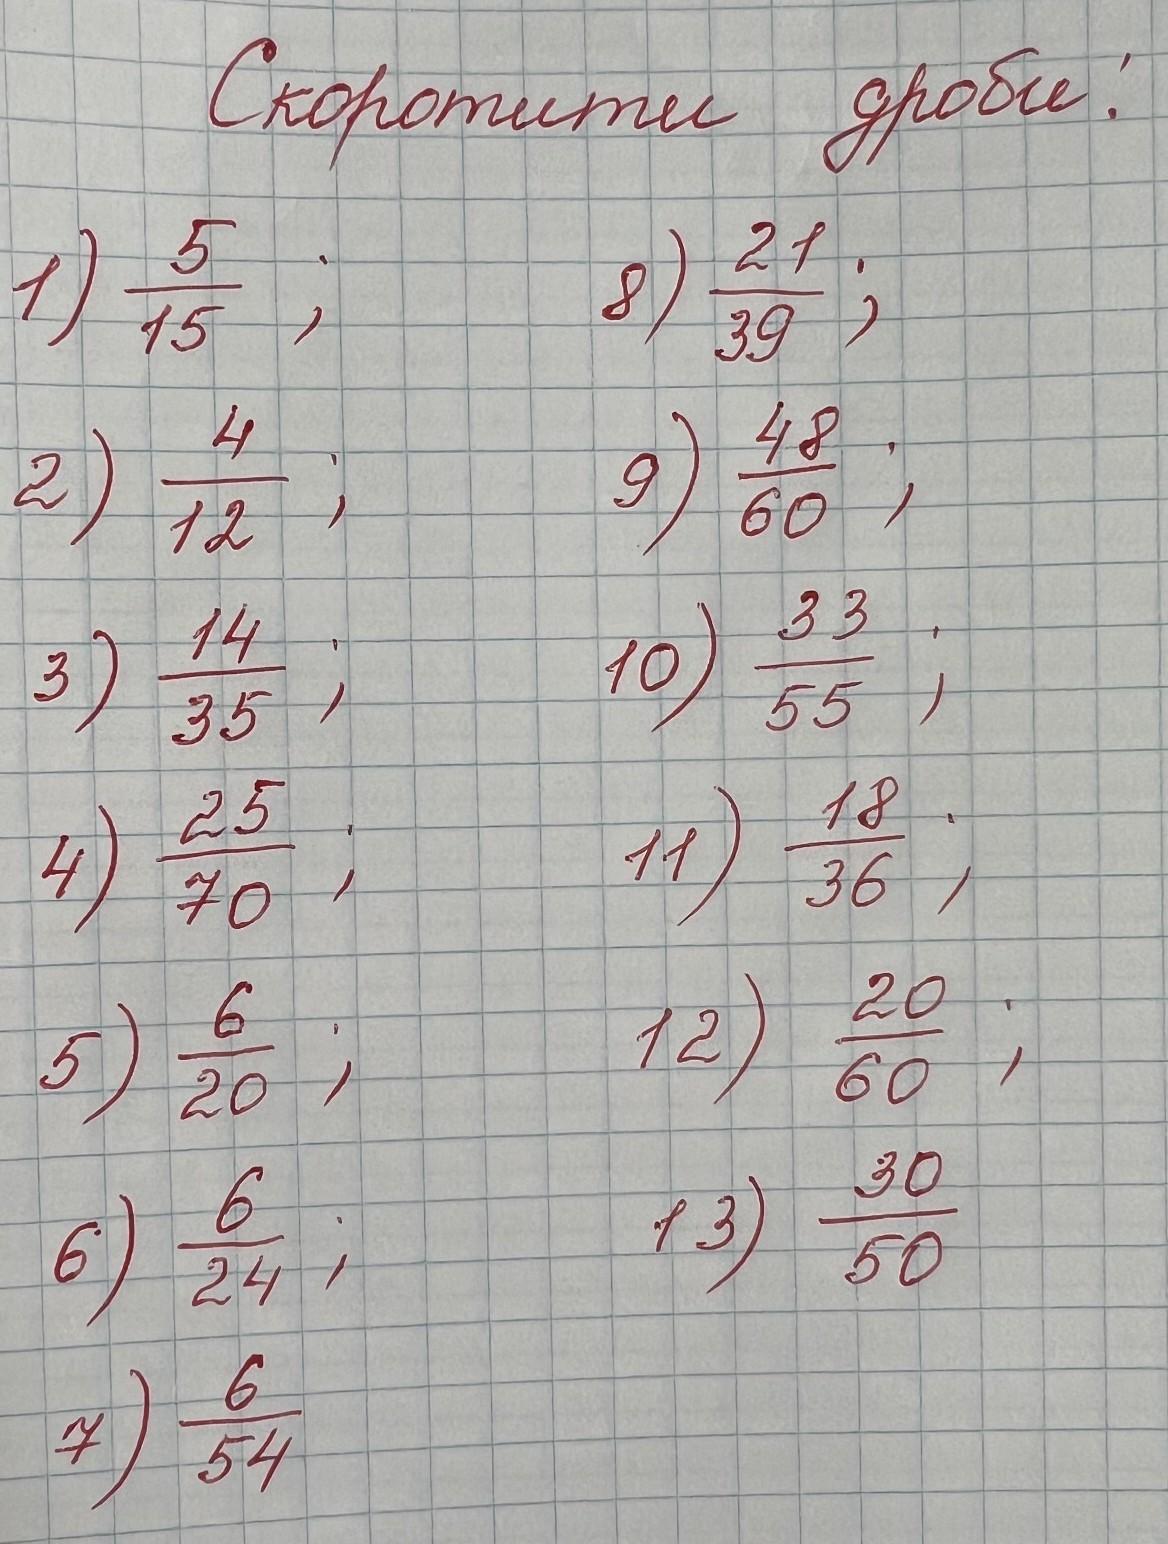 Скоротити дроби:
1) 5/15 ;
2) 4/12 ;
3) 14/35 ;
4) 25/70 ;
5) 6/20 ;
6) 6/24 ;
7) 6/54
8) 21/39 ;
9) 48/60 ;
10) 33/55 ;
11) 18/36 ;
12) 20/60 ;
13) 30/50